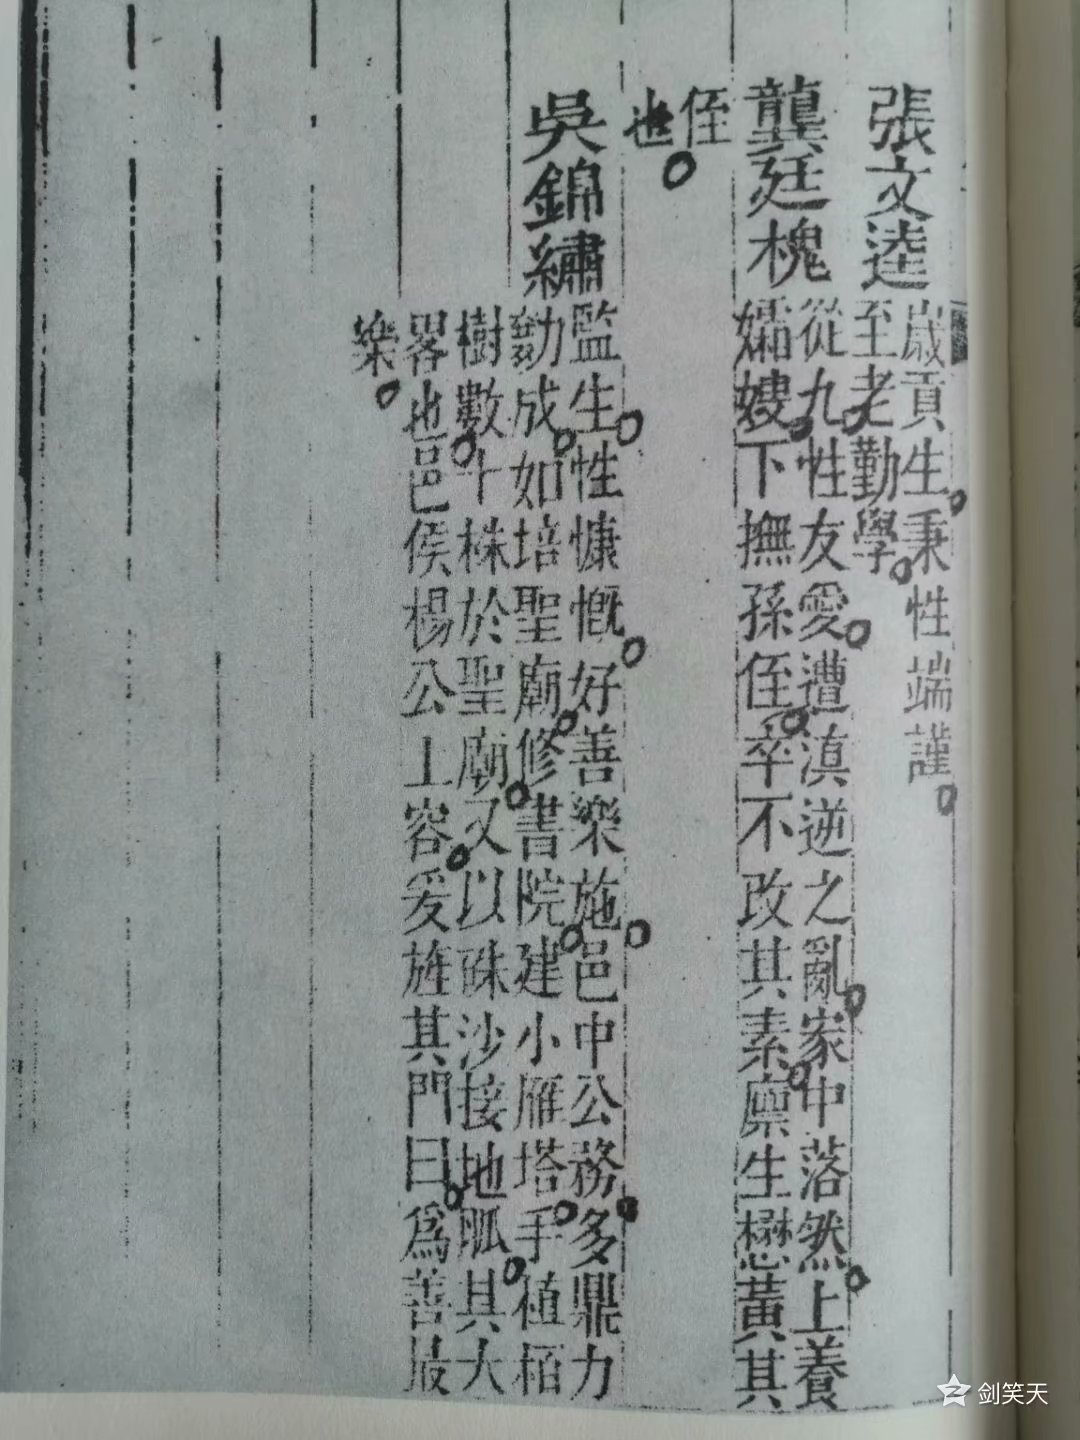 張文逵
歲貢生秉性端謹
至老勤學
龔廷槐
從九性友愛遭滇逆之亂家中落然上養
孀嫂下撫孫侄卒不改其素廪生懋黃其
侄
也
吳錦繡
監生性慷慨好善樂施邑中公務多鼎力
勷成如培聖廟修書院建小雁塔手植栢
樹數十株於聖廟又以硃沙接地脈其大
畧也邑侯楊公上容爰旌其門曰爲善最
樂
剑笑天